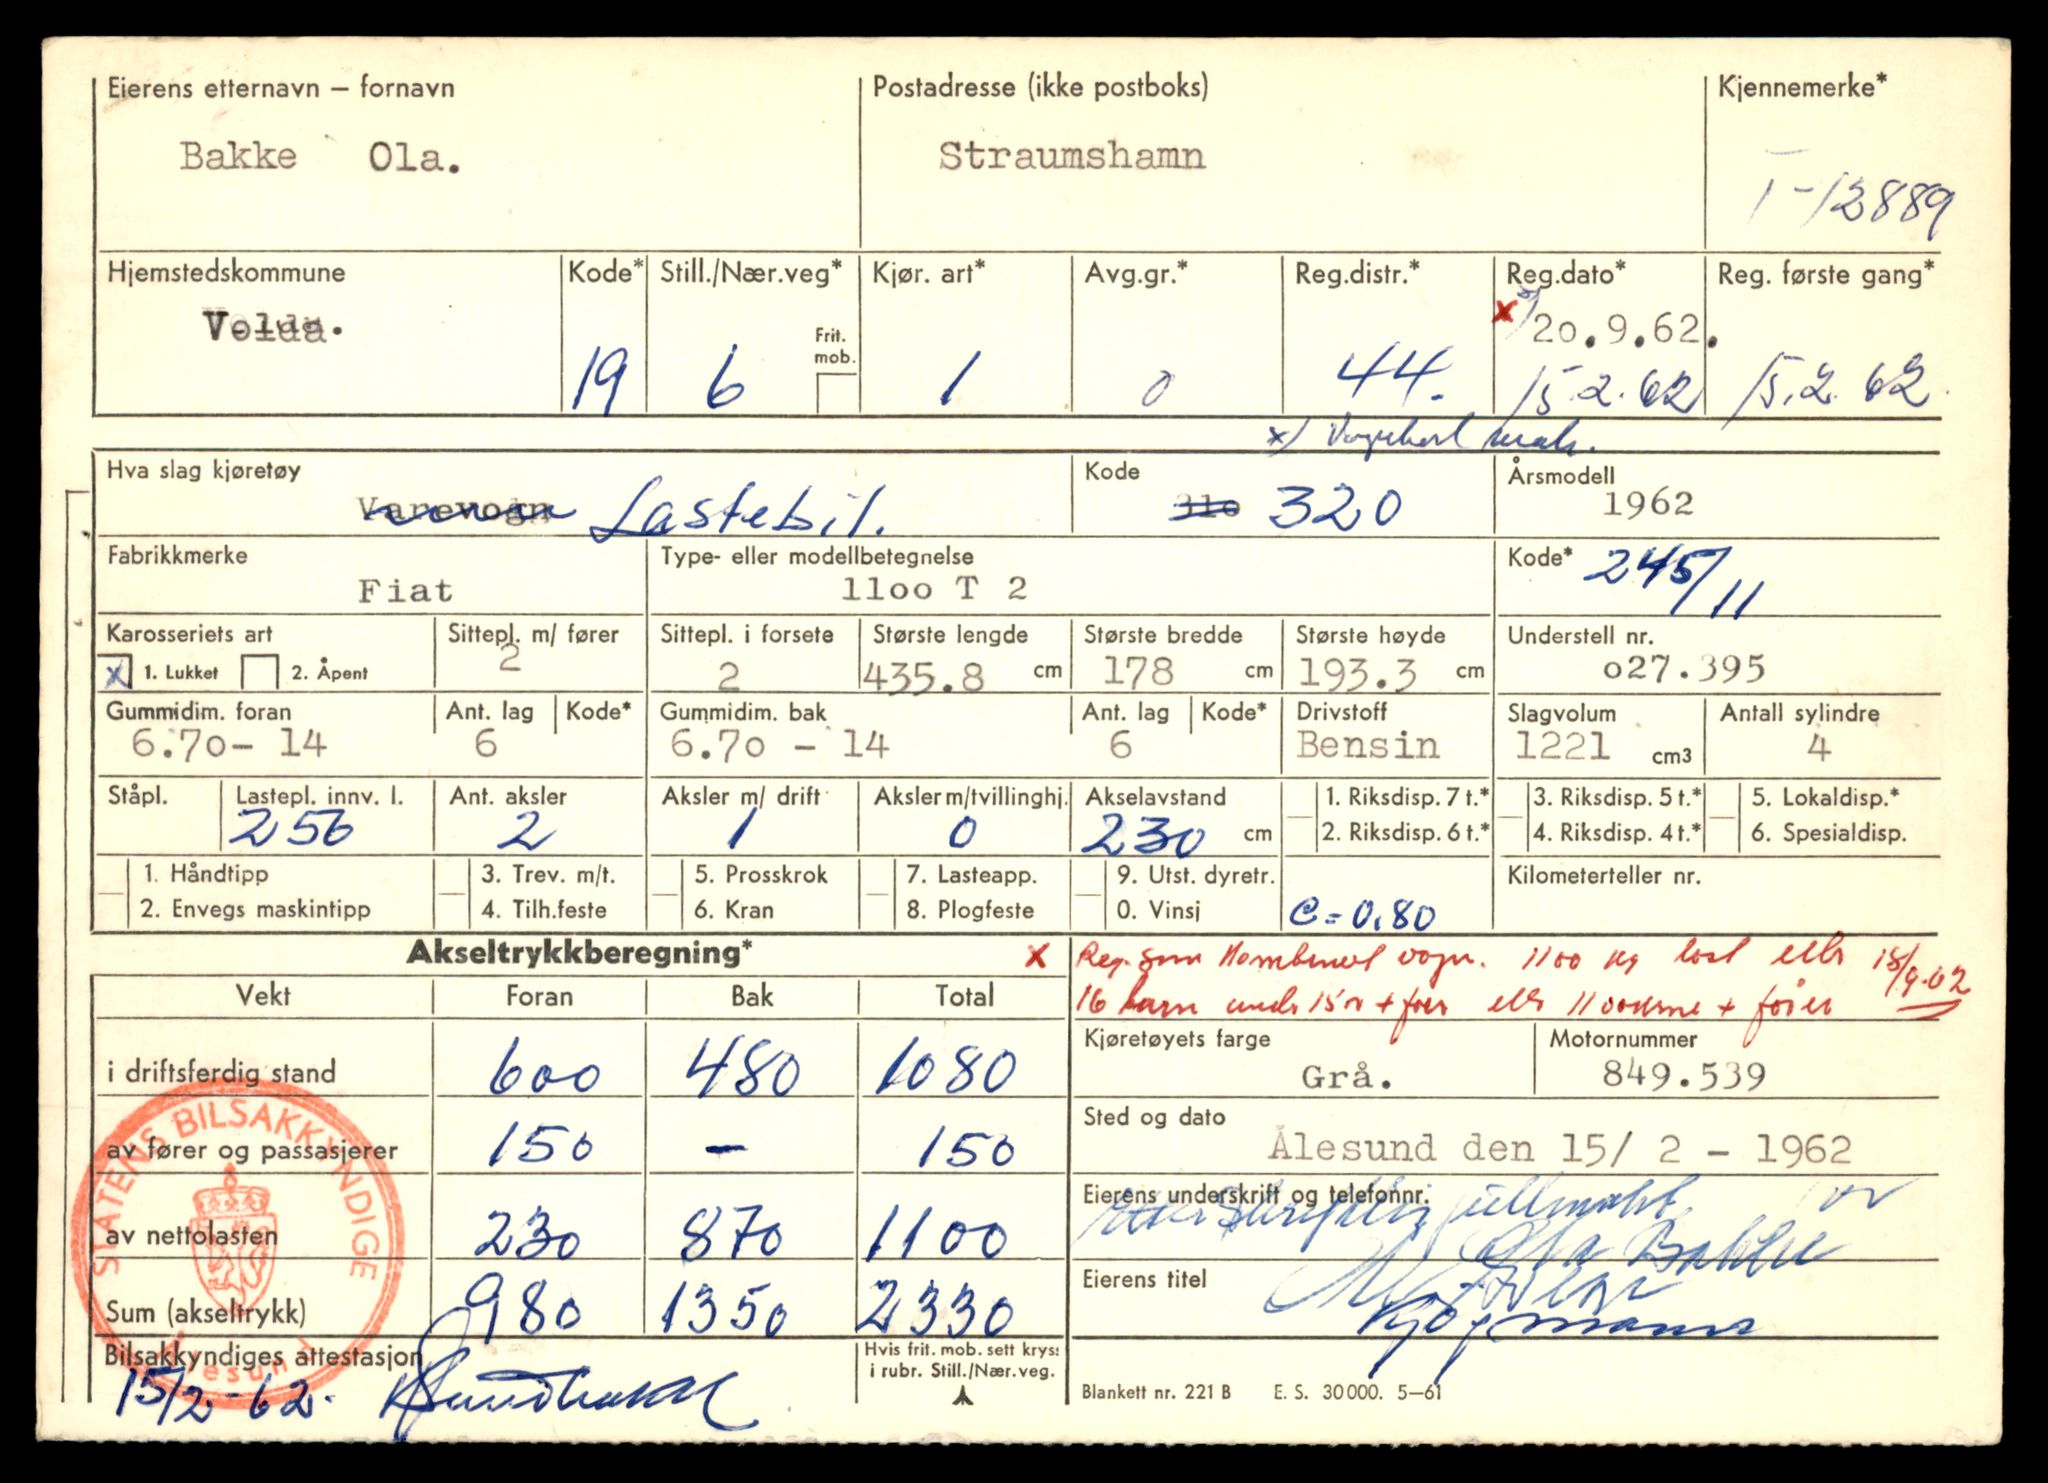 Eierens etternavn – fornavn Postadresse (ikke postboks) Kjennemerke*
Bakke Ola. Straumshamn
T-12889
Hjemstedskommune Kode* Still./Nær.veg* Kjør. art* Avg.gr.* Reg.distr.* Reg.dato* Reg. første gang*
Volda. Frit. mob. x 20.9.62.
19 6 1 0 44. 15.2.62 15.2.62.
x)
Hva slag kjøretøy Kode Årsmodell
Varevogn Lastebil. 310 320 1962
Fabrikkmerke Type- eller modellbetegnelse Kode* 245/11
Fiat 1100 T 2
Karosseriets art Sittepl. m/ fører Sittepl. i forsete Største lengde Største bredde Største høyde Understell nr.
x 1. Lukket 2. Åpent 2 2 435.8 cm 178 cm 193.3 cm 027.395
Gummidim. foran Ant. lag Kode* Gummidim. bak Ant. lag Kode* Drivstoff Slagvolum Antall sylindre
6.70- 14 6 6.70 - 14 6 Bensin 1221 cm3 4
Ståpl. Lastepl. innv. l. Ant. aksler Aksler m/ drift Aksler m/tvillinghj. Akselavstand 1. Riksdisp. 7 t.* 3. Riksdisp. 5 t.* 5. Lokaldisp.*
256 2 1 0 230 cm 2. Riksdisp. 6 t.* 4. Riksdisp. 4 t.* 6. Spesialdisp.
1. Håndtipp 3. Trev. m/t. 5. Prosskrok 7. Lasteapp. 9. Utst. dyretr. Kilometerteller nr.
2. Envegs maskintipp 4. Tilh.feste 6. Kran 8. Plogfeste 0. Vinsj c = 0.80
Akseltrykkberegning* x Reg. som vogn. 1100 kg last eller 18/9-62
Vekt Foran Bak Total 16 barn under 15 år + fører eller 11 + fører
i driftsferdig stand 600 480 1080 Kjøretøyets farge Motornummer
Grå. 849.539
av fører og passasjerer 150 – 150 Sted og dato
Ålesund den 15/ 2 - 1962
av nettolasten 230 870 1100 Eierens underskrift og telefonnr.
fullmakt for
Ola Bakke
Sum (akseltrykk) 980 1350 2330 Eierens titel
Kjøpmann
Bilsakkyndiges attestasjon Hvis frit. mob. sett kryss
i rubr. Still./Nær.veg.
15/2-62.
Blankett nr. 221 B E. S. 30 000. 5–61
STATENS BILSAKKYNDIGE
Ålesund